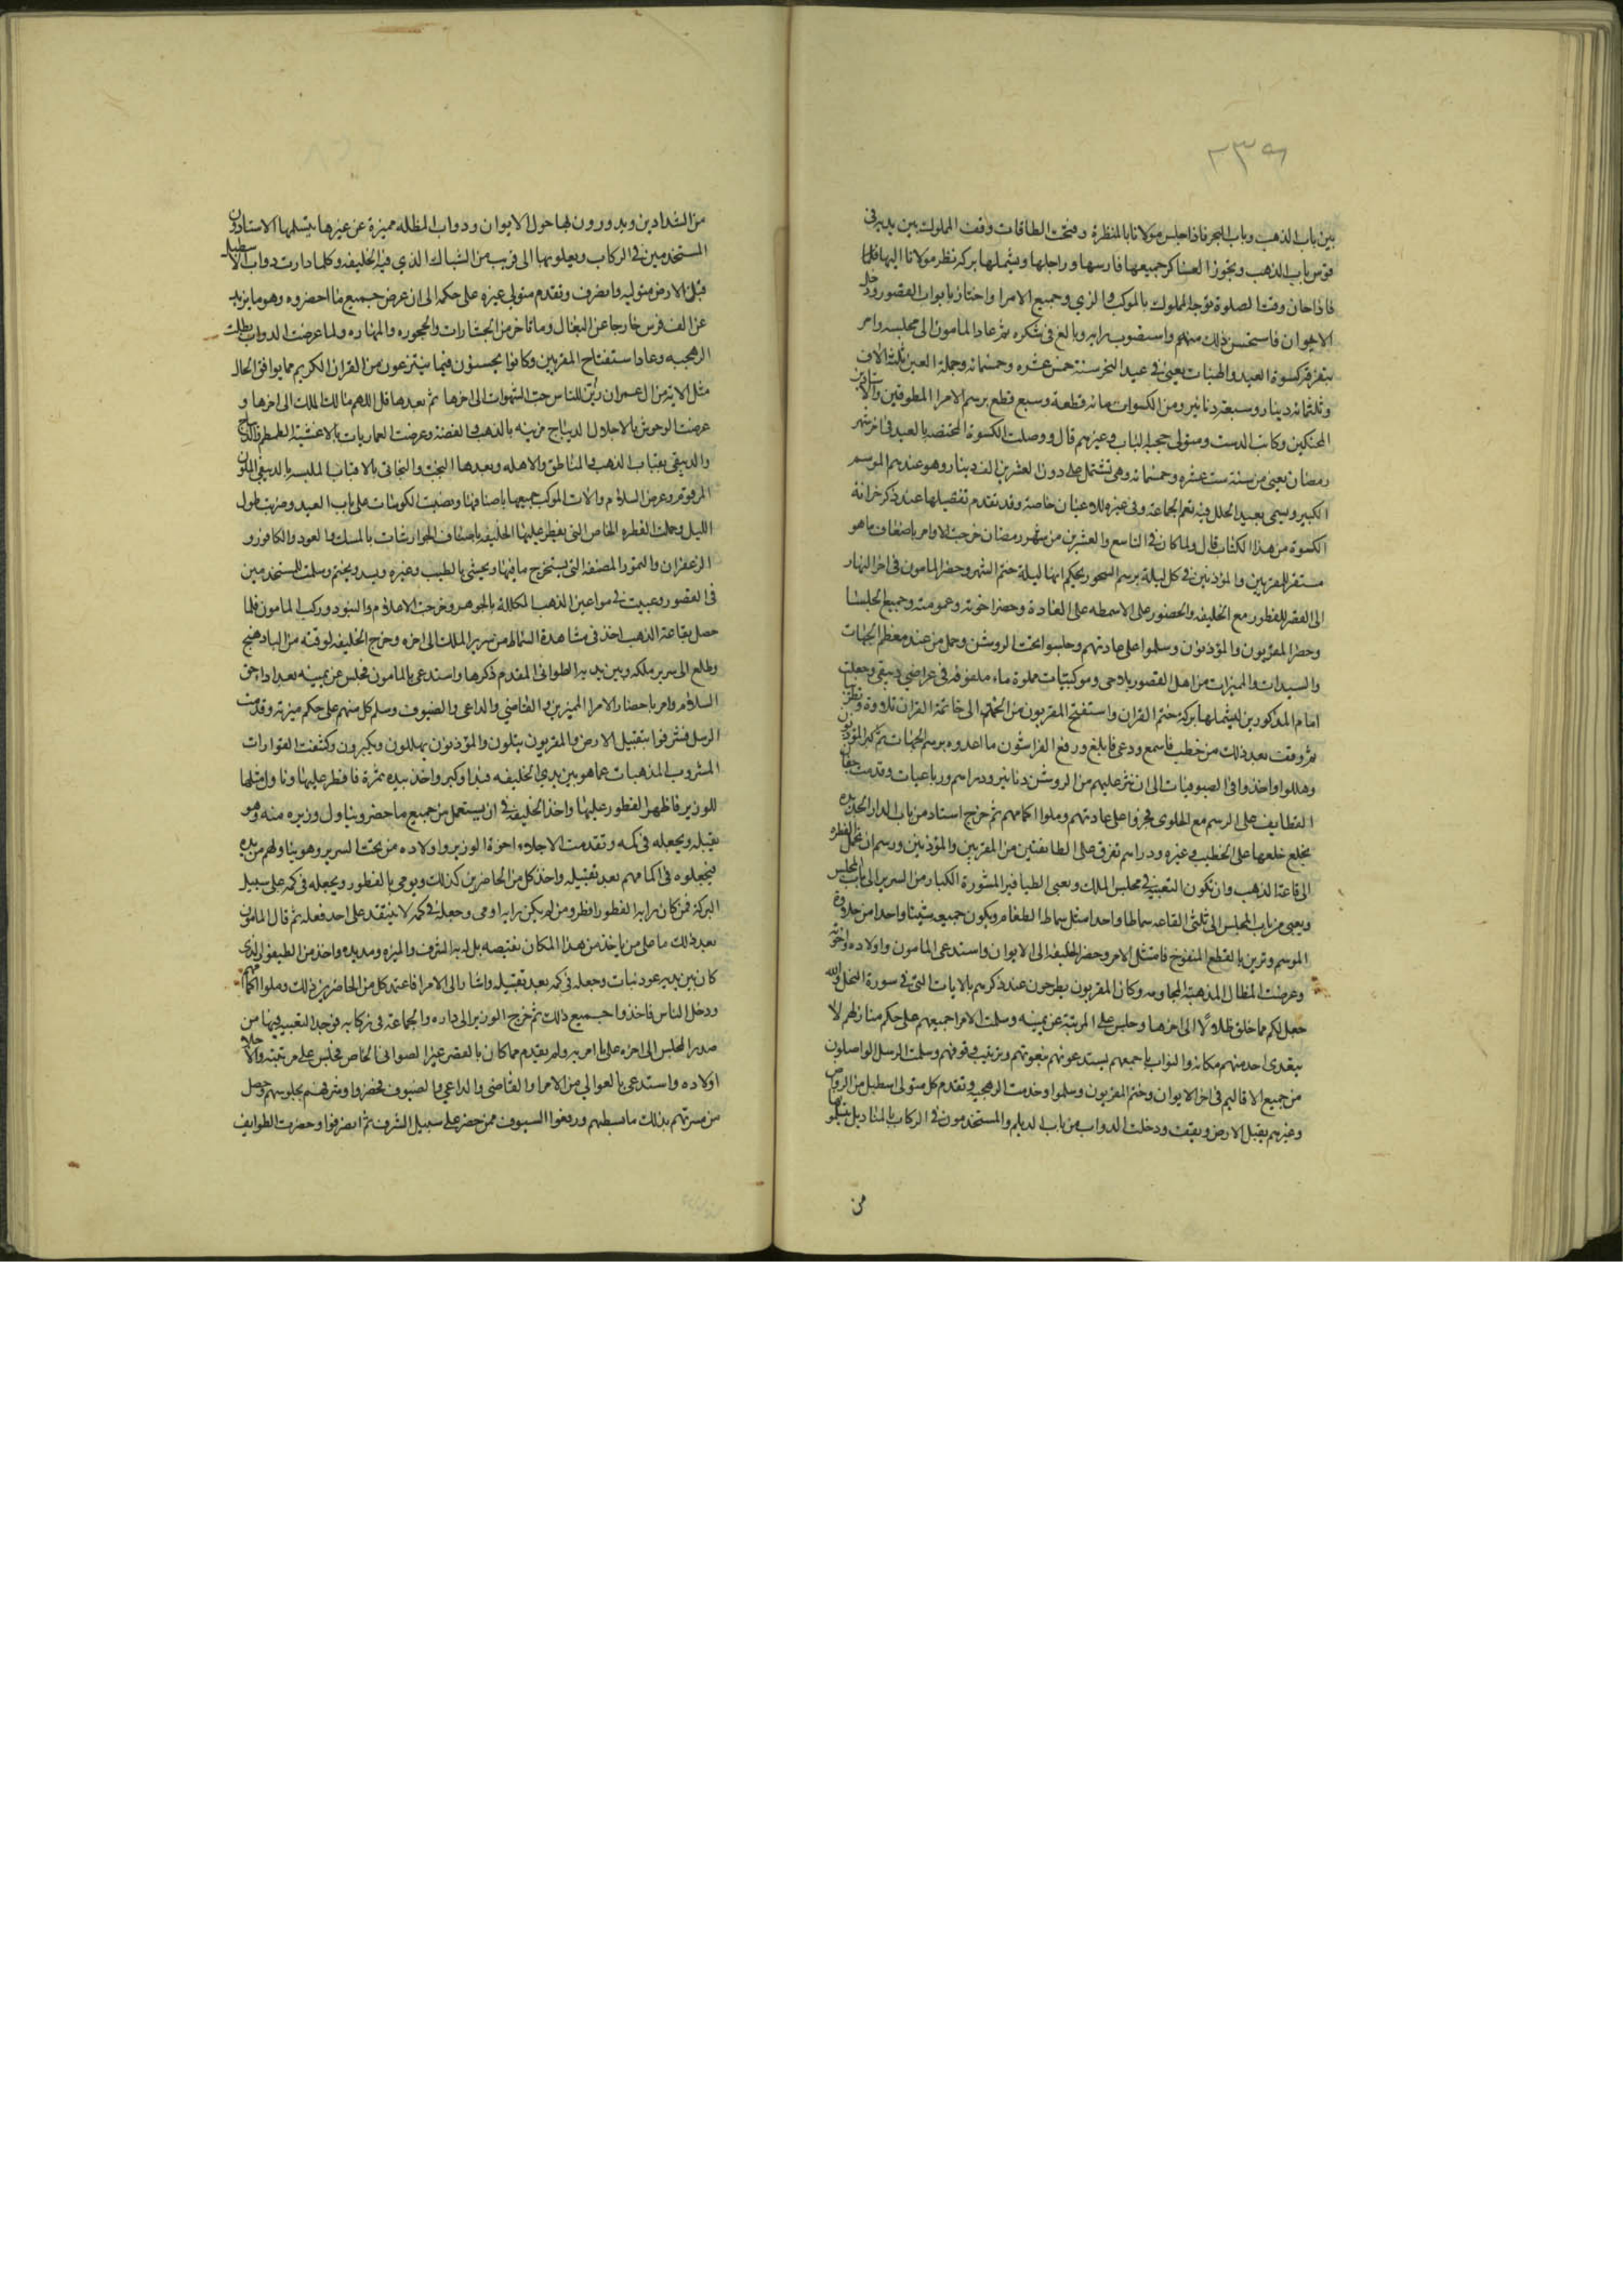 ٢٣٩
بين باب الذهب وباب البحر فاذا جلس مولانا بالمنظرة وفتحت الطاقات وقف المملوك بين يديه في
قوس باب الذهب وتجوز العساكر جميعها فارسها وراجلها ويشملها بركة نظر مولانا اليها
فاذا حان وقت الصلوة توجه المملوك بالموكب والزي وجميع الامرا واجتاز بابواب القصور ودخل
الايوان فاستحسن ذلك منهم واستصوب رايه وبالغ في شكره ثم عاد المامون الى مجلسه وامر
بتفرقة كسوة العيد والهبات يعني في عيد النحر سنة خمس عشره وخمسمائه وجملة العين ثلثة الاف
وثلثمائه دينار وسبعة دنانير ومن الكسوات مائه قطعة وسبع قطع برسم الامرا المطوقين والاستادين
المحنكين وكاتب الدست ومتولى حجبة الباب وغيرهم قال ووصلت الكسوة المختصة بالعيد في اخر شهر
رمضان يعني من سنة ست عشره وخمسمائه وهي تشتمل على دون العشرين الف دينار وهو عندهم الموسم
الكبير ويسمى بعيد الحلل فيه تعم الجماعة وفي غيره للاعيان خاصة وقد تقدم تفصيلها عند ذكر خزانة
الكسوة من هذا الكتاب قال ولما كان في التاسع والعشرين من شهر رمضان خرجت الاوامر باضعاف ما هو
مستقر للمقريين والموذنين في كل ليلة برسم السحور بحكم انها ليلة ختم الشهر وحضر المامون في اخر النهار
الى القصر للفطور مع الخليفه والحضور على الاسمطه على العادة وحضر اخوته وعمومته وجميع الجلسا
وحضر المقريون والموذنون وسلموا على عادتهم وجلسوا تحت الروشن وحمل من عند معظم الجهات
والسيدات والمميزات من اهل القصور بلاحى وموكبيات مملوة ماء ملفوفه في عراضي ديبقي وجعلت
امام المذكورين ليشملها بركة ختم القران واستفتح المقريون من الحمد الى خاتمة القران تلاوة وتطريبا
ثم وقف بعد ذلك من خطب فاسمع ودعى فابلغ ورفع الفراشون ما اعدوه برسم الجهات ثم كبر الموذنون
وهللوا واخذوا في الصوفيات الى ان نثر عليهم من الروشن دنانير ودراهم ورباعيات وقدمت جفان
القطايف على الرسم مع الحلوى فجروا على عادتهم وملوا اكمامهم ثم خرج استاد من باب الدار الجديده
بخلع خلعها على الخطيب وغيره ودراهم تفرق على الطايفتين من المقريين والموذنين ورسم ان تحمل الفطره
الى قاعة الذهب وان تكون التعبيه في مجلس الملك وتعبى الطيافير المشورة الكبار من السرير الى باب المجلس
وتعبى من باب المجلس الى ثلثى القاعه سماطا واحدا مثل سماط الطعام ويكون جميعه شيئا واحدا من حلاوة
الموسم وتزين بالقطع المنفوخ فامتثل الامر وحضر الخليفه الى الايوان واستدعى المامون واولاده واخوته
وعرضت المظال المذهبة المجاومه وكان المقريون يطرحون عند ذكرهم بالايات التي في سورة النحل والله
جعل لكم مما خلق ظلالا الى اخرها وجلس على المرتبة عن يمينه وسلمت الامرا جميعهم على حكم منازلهم لا
يتعدى احد منهم مكانه والنواب باجمعهم يستدعونهم بنعوتهم وترتيب وقوفهم وسلمت الرسل الواصلون
من جميع الاقاليم في اخر الايوان وختم المقريون وسلموا وخدمت الرهجيه وتقدم كل متولى اسطبل من الرواض
وغيرهم يقبل الارض ويقف ودخلت الدواب من باب الديلم والمستخدمون في الركاب بالمناديل يتسلموها
من
من الشدادين ويدورون بها حول الايوان ودواب المظله مميزة عن غيرها يتسلمها الاستادون
المستخدمين في الركاب ويعلون بها الى قريب من الشباك الذي فيه الخليفه وكلما دارت دواب الاسطبل
قبل الارض متوليه وانصرف وتقدم متولى غيره على حكمه الى ان عرض جميع ما احضروه وهو ما يزيد
عن الف فرس خارجا عن البغال وما تاخر من العشارات والحجوره والمهاره ولما عرضت الدواب بطلت
الرهجيه وعاد استفتاح المقريين وكانوا يحسنون فيما ينتزعون من القران الكريم مما يوافق الحال
مثل الاية من ال عمران زين للناس حب الشهوات الى اخرها ثم بعدها قل اللهم مالك الملك الى اخرها و
عرضت الوحوش بالاجلال الديباج مزينه بالذهب والفضة وعرضت العماريات بالاغشية
والدبيقى بقباب الذهب والمناطق والاهله وبعدها البخت والبخاتي بالاقتاب الملبسه بالدبيقى الملون
المرقوم وعرض السلاح والات الموكب جميعها باصنافها ونصبت الكوسات على باب العيد وضربت طول
الليل وحملت الفطره الخاص التي يفطر عليها الخليفه باصناف الجوارشات بالمسك والعود والكافور و
الزعفران والتمور المصبغه التي يستخرج ما فيها ويحشى بالطيب وغيره ويسد ويختم وسلمت للمستخدمين
في القصور وعبيت في مواعين الذهب المكلله بالجوهر وخرجت الاعلام والبنود وركب المامون فلما
حصل بقاعة الذهب اخذ في مشاهدة السماط من سرير الملك الى اخره وخرج الخليفه لوقته من الباذهنج
وطلع الى سرير ملكه وبين يديه الطوافي المقدم ذكرها واستدعى بالمامون فجلس عن يمينه بعد ادا حق
السلام وامر باحضار الامرا المميزين والقاضي والداعى والضيوف وسلم كل منهم على حكم ميزته وقدمت
الرسل فشرفوا بتقبيل الارض والمقريون يتلون والموذنون يهللون ويكبرون وكشفت القوارات
المشروب المذهبات عما هو بين يدي الخليفه فبدا وكبر واخذ بيده تمرة فافطر عليها وناول مثلها
للوزير فاظهر الفطور عليها واخذ الخليفه في ان يستعمل من جميع ما حضر ويناول وزيره منه وهو
يقبله ويجعله في كمه وتقدمت الاجلاء اخوة الوزير واولاده من تحت السرير وهو يناولهم من يده
فيجعلوه في اكمامهم بعد تقبيله واخذ كل من الحاضرين كذلك ويومي بالفطور ويجعله في كمه على سبيل
البركة فمن كان رايه الفطور افطر ومن لم يكن رايه اومى وجعله في كمه لا ينتقد على احد فعله ثم قال المامون
بعد ذلك ما على من ياخذ من هذا المكان نقيصه بل له به الشرف والميزه ومد يده واخذ من الطيفور الذي
كان بين يديه عود نبات وجعله في كمه بعد تقبيله واشار الى الامرا فاعتمد كل من الحاضرين ذلك وملوا اكمامهم
ودخل الناس فاخذوا جميع ذلك ثم خرج الوزير الى داره والجماعة في ركابه فوجد التعبيه فيها من
صدر المجلس الى اخره على ما امر به ولم يعدم مما كان بالقصر غير الصواني الخاص فجلس على مرتبته والاجلاء
اولاده واستدعى بالعوالي من الامرا والقاضي والداعي والضيوف فحضروا وشرفهم بجلوسهم وحصل
من مسرتهم بذلك ما بسطهم ورفعوا السيوف ممن حضر على سبيل الشرف ثم انصرفوا وحضرت الطوايف